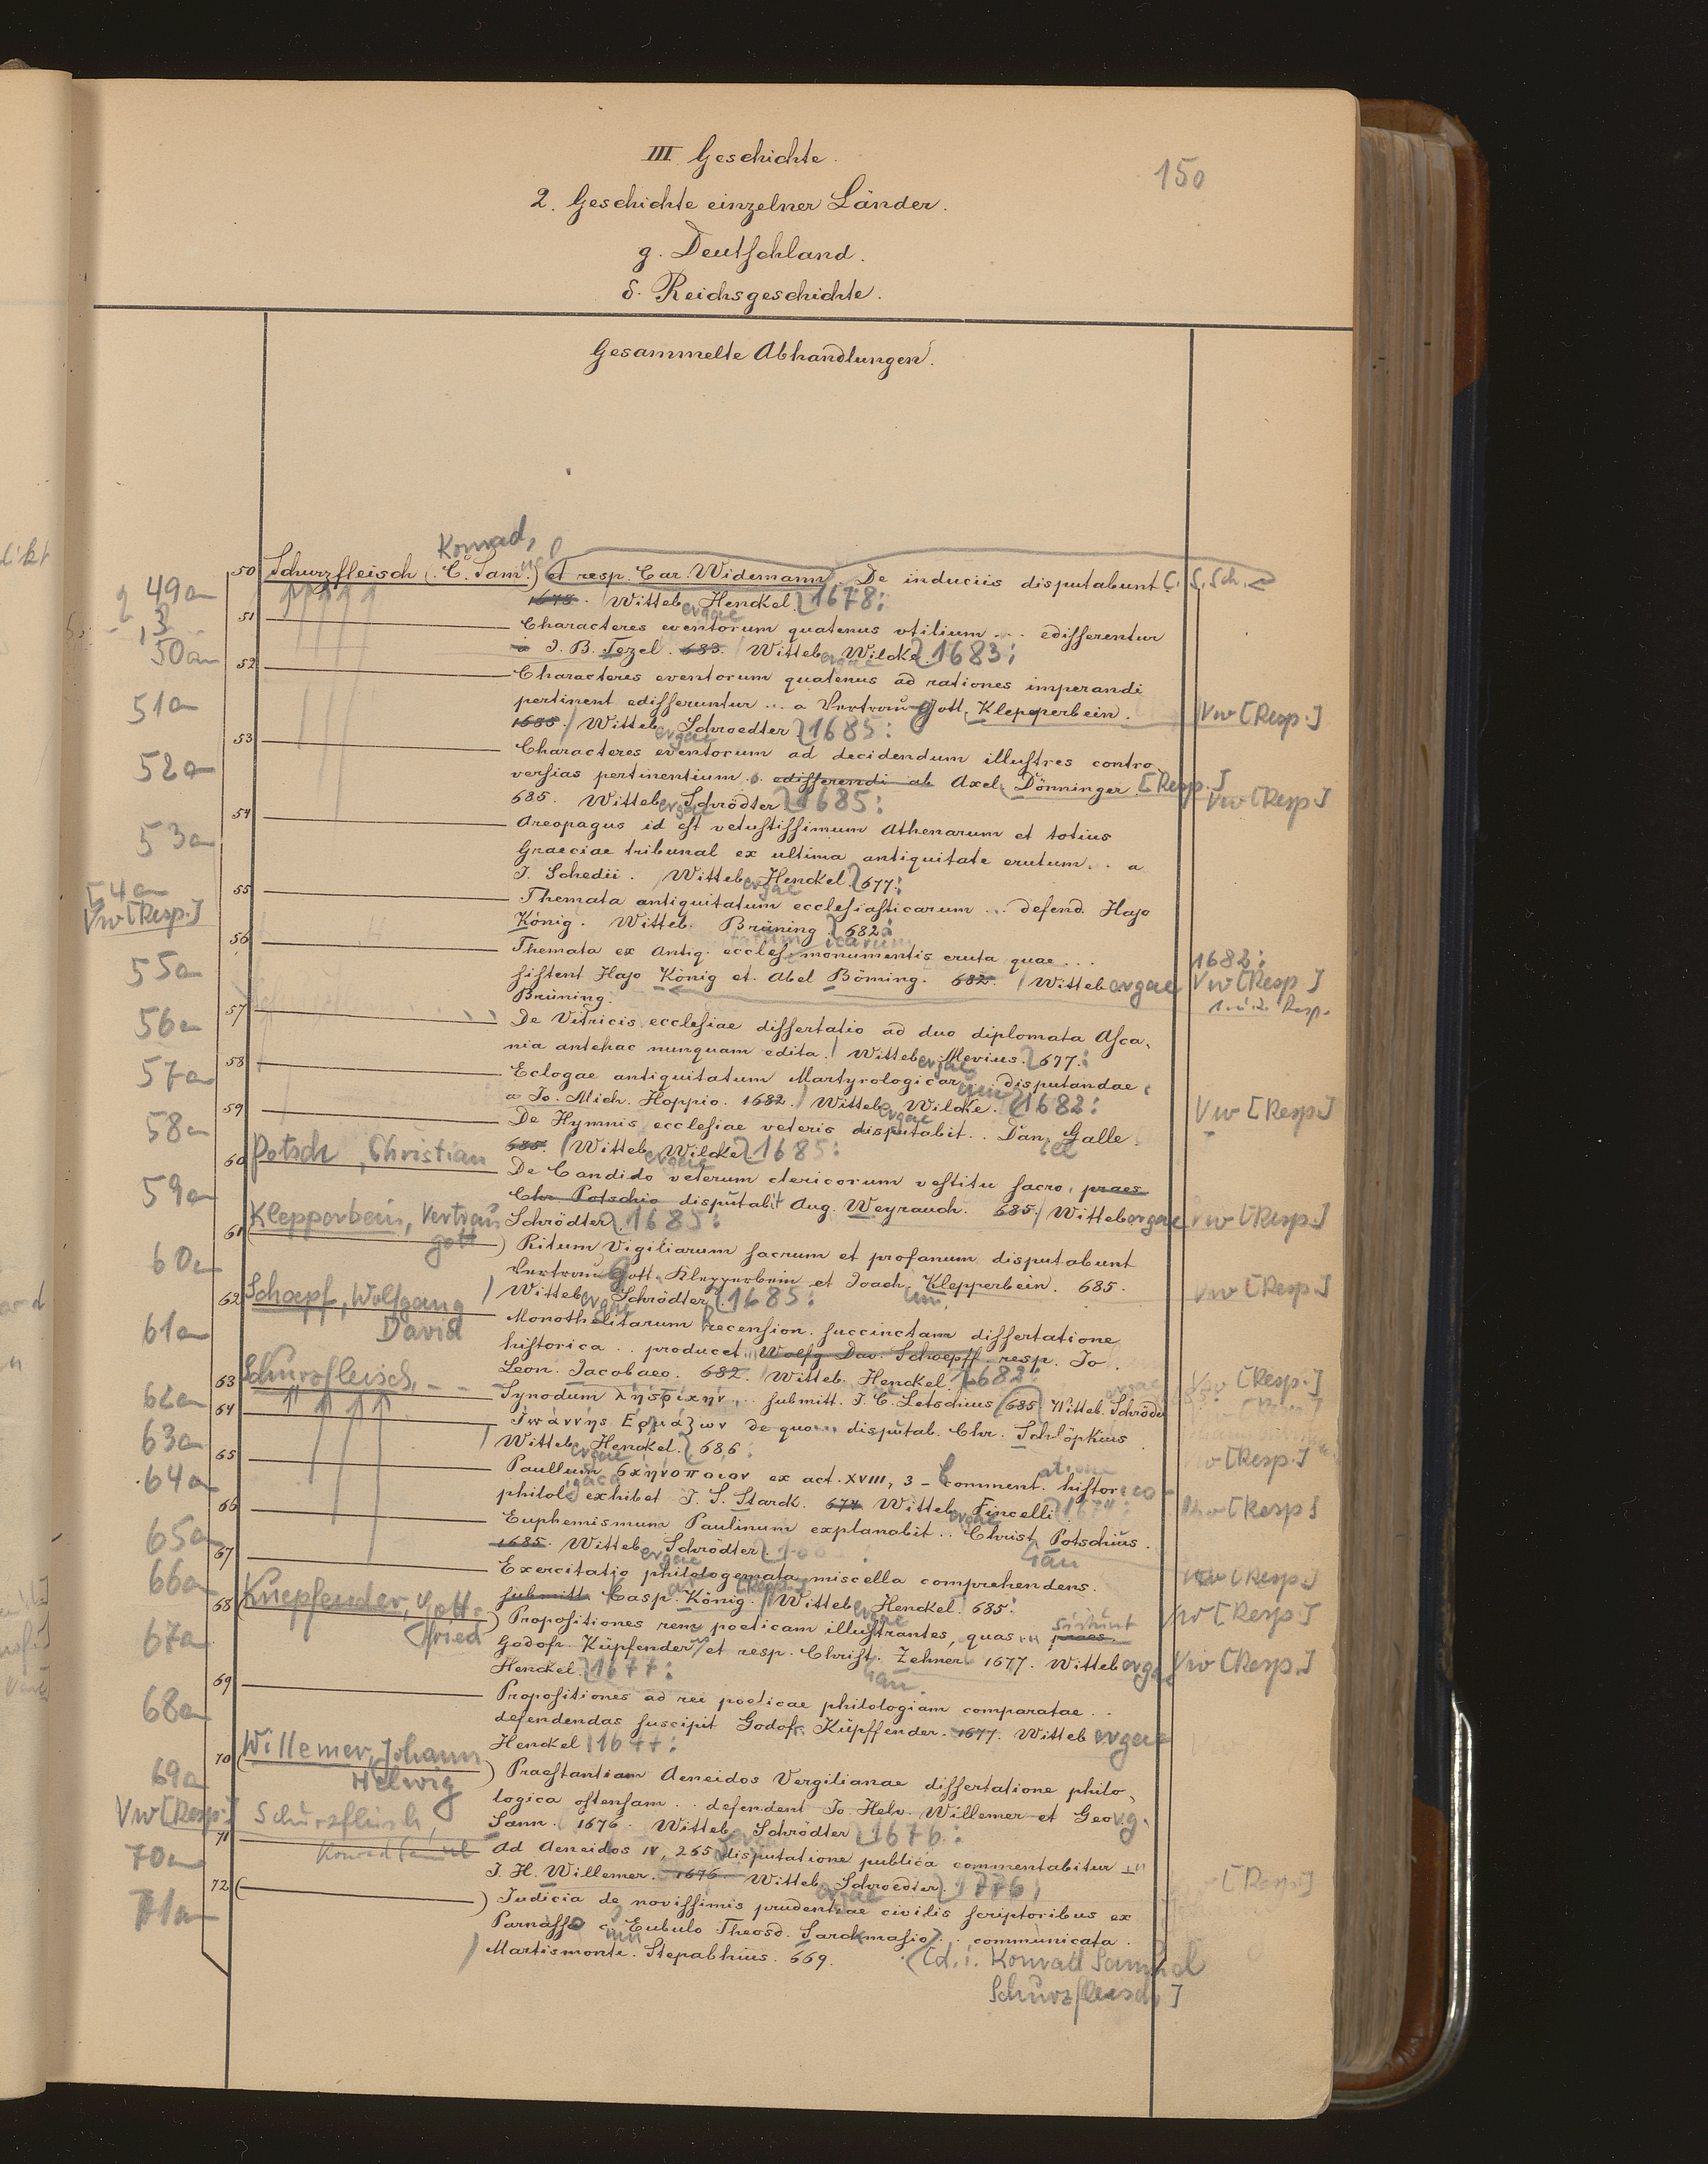 III Geschichte.
150
2. Geschichte einzelner Länder.
g. Deutschland.
δ. Reichsgeschichte.
Gesammelte Abhandlungen.
Konrad,
49a 50 Schurzfleisch (C. Sam.) et resp. Car. Widemann. De induciis disputabunt C. S. Sch.
1678. Witteb. Henckel. 1678:
50a 51 Characteres eventorum quatenus utilium ... edisserentur
a J. B. Tezel. 683. Wittebergae Wilcke. 1683:
52 Characteres eventorum quatenus ad rationes imperandi
51a pertinent edisseruntur ... a Vertrau Gott. Klepperbein. Vw [Resp.]
1685. Wittebergae Schroedter 1685:
53 Characteres eventorum ad decidendum illustres contro
52a versias pertinentium .. edisserendi ab Axel Dönninger. [Resp.] Vw [Resp.]
685. Wittebergae Schrödter 1685:
54 Areopagus id est vetustissimum Athenarum et totius
53a Graeciae tribunal ex ultima antiquitate erutum .. a
J. Schedii. Wittebergae Henckel. 677:
54a 55 Themata antiquitatum ecclesiasticarum ... defend. Hajo
Vw [Resp.] König. Witteb. Brüning. 682:
56 Themata ex Antiq. eccles. monumentis eruta quae ... 1682:
55a sistent Hajo König et Abel Böming. 682. Wittebergae Vw [Resp.]
Brüning. 1. u. 2. Resp.
56a 57 De Vitricis ecclesiae dissertatio ad duo diplomata Asca,
nia antehac nunquam edita. Wittebergae Mevius. 677:
57a 58 Eclogae antiquitatum Martyrologicarum .. disputandae
a Jo. Mich. Hoppio. 1682. Wittebergae Wilcke. 1682: Vw [Resp.]
58a 59 De Hymnis ecclesiae veteris disputabit .. Daniel Galle
685. Wittebergae Wilcke 1685:
60 Potsch, Christian De Candido veterum clericorum vestitu sacro, praes.
59a Chr. Potschio disputabit Aug. Weyrauch. 685. Wittebergae Vw [Resp.]
Klepperbein, Vertrau Schrödter 1685:
61 gott Ritum Vigiliarum sacrum et profanum disputabunt
60a Vertrau Gott. Klepperbein et Joach. Klepperbein. 685. Vw [Resp.]
Wittebergae Schrödter. 1685:
62 Schoepf, Wolfgang Monothelitarum recension. succinctam dissertatione
61a David historica .. producet Wolfg. Dav. Schoepff. resp. Jo.
Leon. Jacobaeo. 682. Witteb. Henckel. 1682: Vw [Resp.]
62a 63 Schurzfleisch, - - Synodum ... submitt. J. C. Letschius 685 Witteb. Schrödter
63a 64 de quo disputab. Chr. Schlöpkius
Wittebergae Henckel. 686: Vw [Resp.]
64a 65 Paullum ex act. XVIII, 3 - comment. histor
philol. exhibet J. S. Starck. 674 Wittebergae Fincelli 1674: Vw [Resp.]
65a 66 Euphemismum Paulinum explanabit .. Christian Potschius.
1685. Wittebergae Schrödter.
66a 67 Exercitatio philologemata miscella comprehendens. Vw [Resp.]
submitt. Casp. König. [Resp.] Wittebergae Henckel. 685: Vw [Resp.]
68 Kuepfender, Gott- Propositiones rem poeticam illustrantes, quas praes. sistunt
67a fried Godofr. Küpfender et resp. Christian Zehner 1677. Wittebergae Vw [Resp.]
Henckel. 1677:
69 Propositiones ad rei poeticae philologiam comparatae ..
68a defendendas suscipit Godofr. Küpffender. 1677. Wittebergae
Henckel 1677:
70 Willemer, Johann Praestantiam Aeneidos Vergilianae dissertatione philo,
69a Helwig logica ostensam .. defendent Jo. Helv. Willemer et Georg.
Vw [Resp.] Schurzfleisch, Sann. 1676. Witteb. Schrödter 1676:
71 Konrad Samuel Ad Aeneidos IV, 265 disputatione publica commentabitur
70a J. H. Willemer. 1676. Wittebergae Schroedter. 1776: [Resp.]
72 Judicia de novissimis prudentiae civilis scriptoribus ex
71a Parnasso c. Eubulo Theosd. Sarckmasio .. communicata.
Martismonte. Stepabhius. 669. [d. i. Konrad Samuel
Schurzfleisch]